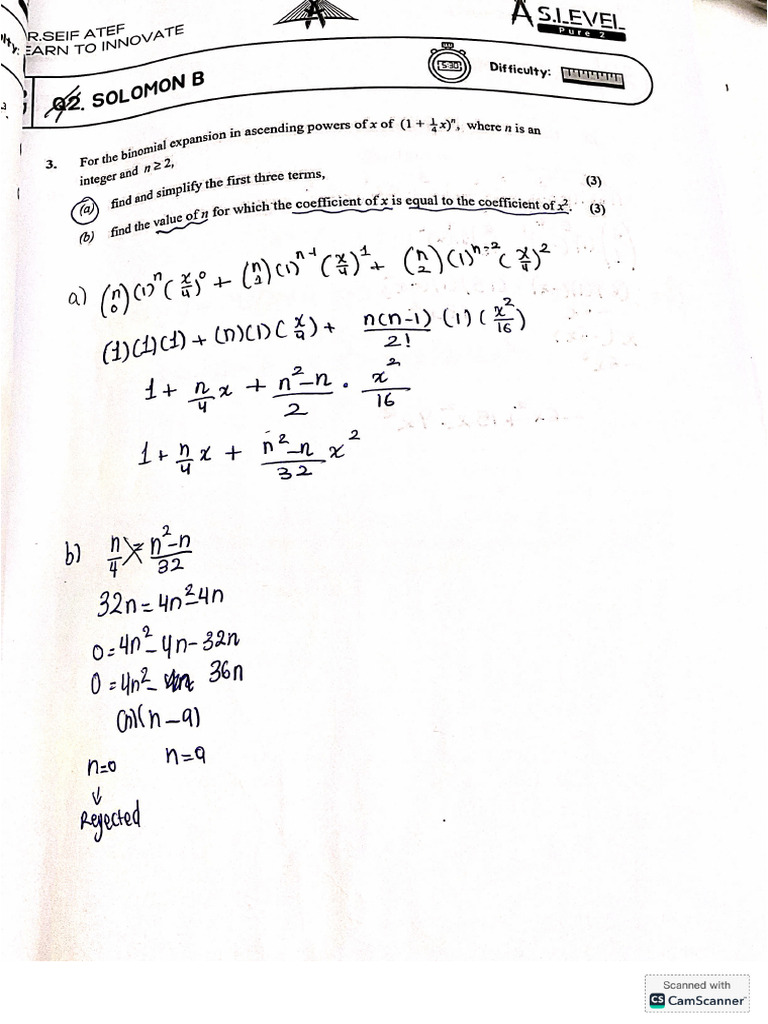 R.SEIF ATEF
EARN TO INNOVATE
A
AS.LEVEL
Pure 2
Q2. SOLOMON B
5:30
Difficulty:
3. For the binomial expansion in ascending powers of x of (1 + 1/4 x)^n, where n is an
integer and n ≥ 2,
(a) find and simplify the first three terms, (3)
(b) find the value of n for which the coefficient of x is equal to the coefficient of x². (3)
a) (n 0)(1)^n(x/4)^0 + (n 1)(1)^(n-1)(x/4)^1 + (n 2)(1)^(n-2)(x/4)^2
(1)(1)(1) + (n)(1)(x/4) + n(n-1)/2! (1)(x²/16)
1 + n/4 x + n²-n/2 · x²/16
1 + n/4 x + n²-n/32 x²
b) n/4 = n²-n/32
32n = 4n²-4n
0 = 4n²-4n-32n
0 = 4n²- 36n
(n)(n-9)
n=0 n=9
↓
Rejected
Scanned with
CS CamScanner